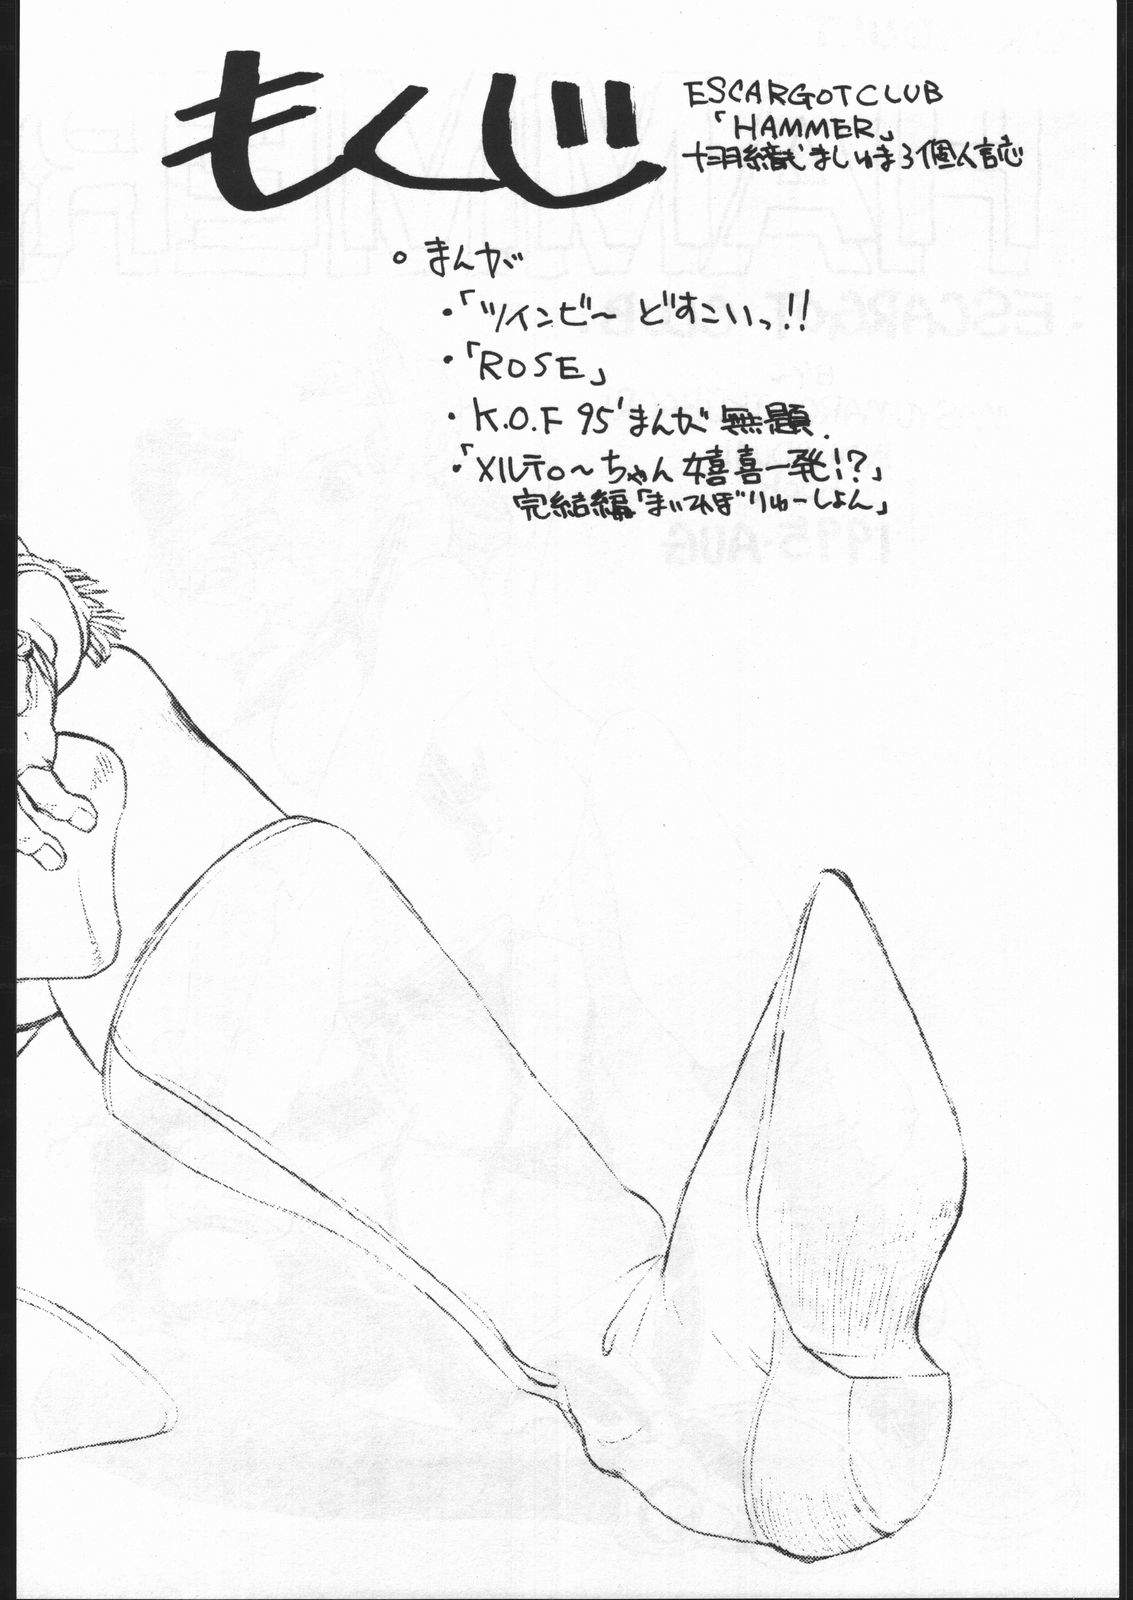 もくじ
ESCARGOT CLUB
「HAMMER」
ましゅまろ個人誌
○ まんが
・「ツインビ〜 どすこいっ!!
・「ROSE」
・K.O.F 95'まんが 無題.
・「メルティ〜ちゃん 嬉喜一発!?」
完結編「まいてれぼりゅーしょん」